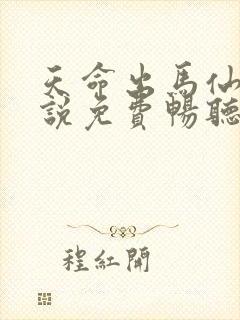 天命出馬仙
說免費暢聽
程紅開